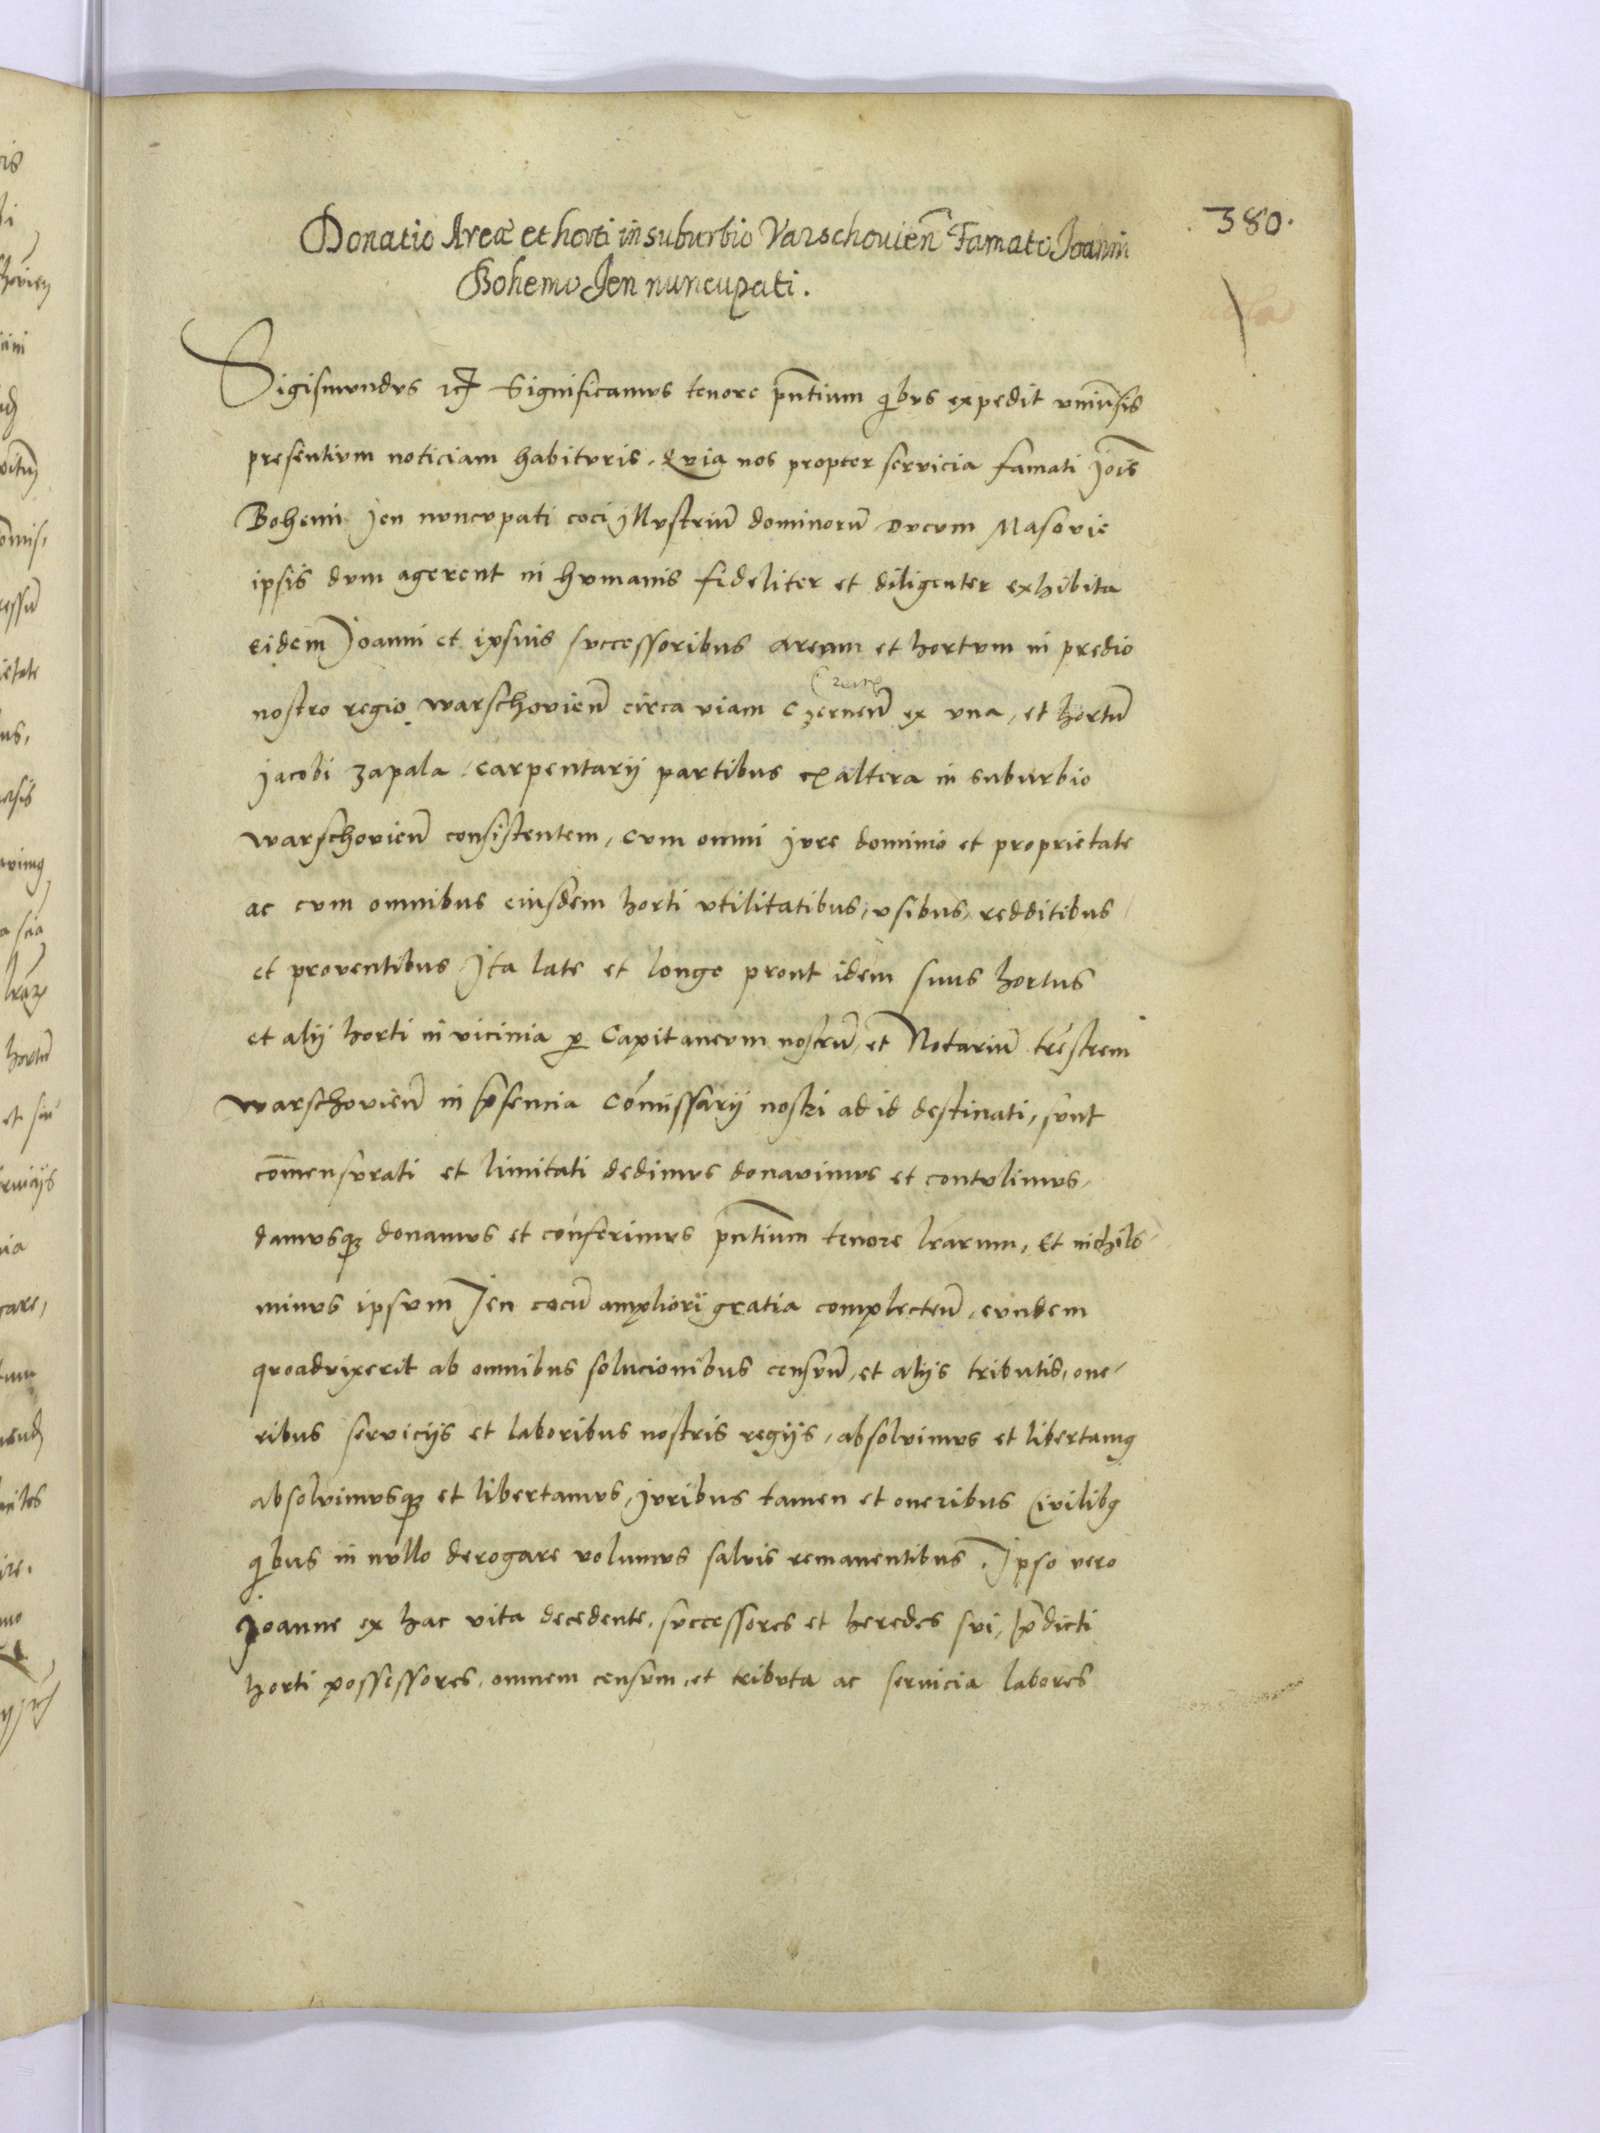 380.
Donatio Areae et horti in suburbio Varschovien̄ Famato Joanni
Bohemo Jen nuncupati.
Sigismundus etc Significamus tenore pn̄tium qibus expedit univ̄sis
presentium noticiam habituris. Quia nos propter servicia famati Jois̄
Bohemi Jen nuncupati coci illustriū dominorū ducum Masovie
ipsis dum agerent in humanis fideliter et diligenter exhibita
eidem Joanni et ipsius successoribus aream et hortum in predio
nostro regio warschovien̄ circa viam Czernen̄ ex una, et hortū
Jacobi Zapala carpentarij partibus ex altera in suburbio
warschovien̄ consistentem, cum omni jure dominio et proprietate
ac cum omnibus eiusdem horti utilitatibus, usibus, redditibus
et proventibus Ita late et longe prout idem suus hortus
et alij horti in vicinia p Capitaneum nostrū, et Notariū trēstrem
warschovien̄ in p̄sencia Cōmissarij nostri ad id destinati, sunt
com̄ensurati et limitati dedimus donavimus et contulimus,
damusq₃ donamus et cōnferimus pn̄tium tenore lrārum, Et nichilo
minus ipsum Jen cocū ampliori gratia complecten̄, eundem
quoad vixerit ab omnibus solucionibus censuū, et alijs tributis, one-
ribus servicijs et laboribus nostris regijs, absolvimus et libertamq
absolvimusq₃ et libertamus, juribus tamen et oneribus Civilibq
qibus in nullo derogare volumus salvis remanentibus. Ipso vero
Joanne ex hac vita decedente, successores et heredes sui, p̄dicti
horti possessores, omnem censum, et tributa ac servicia labores